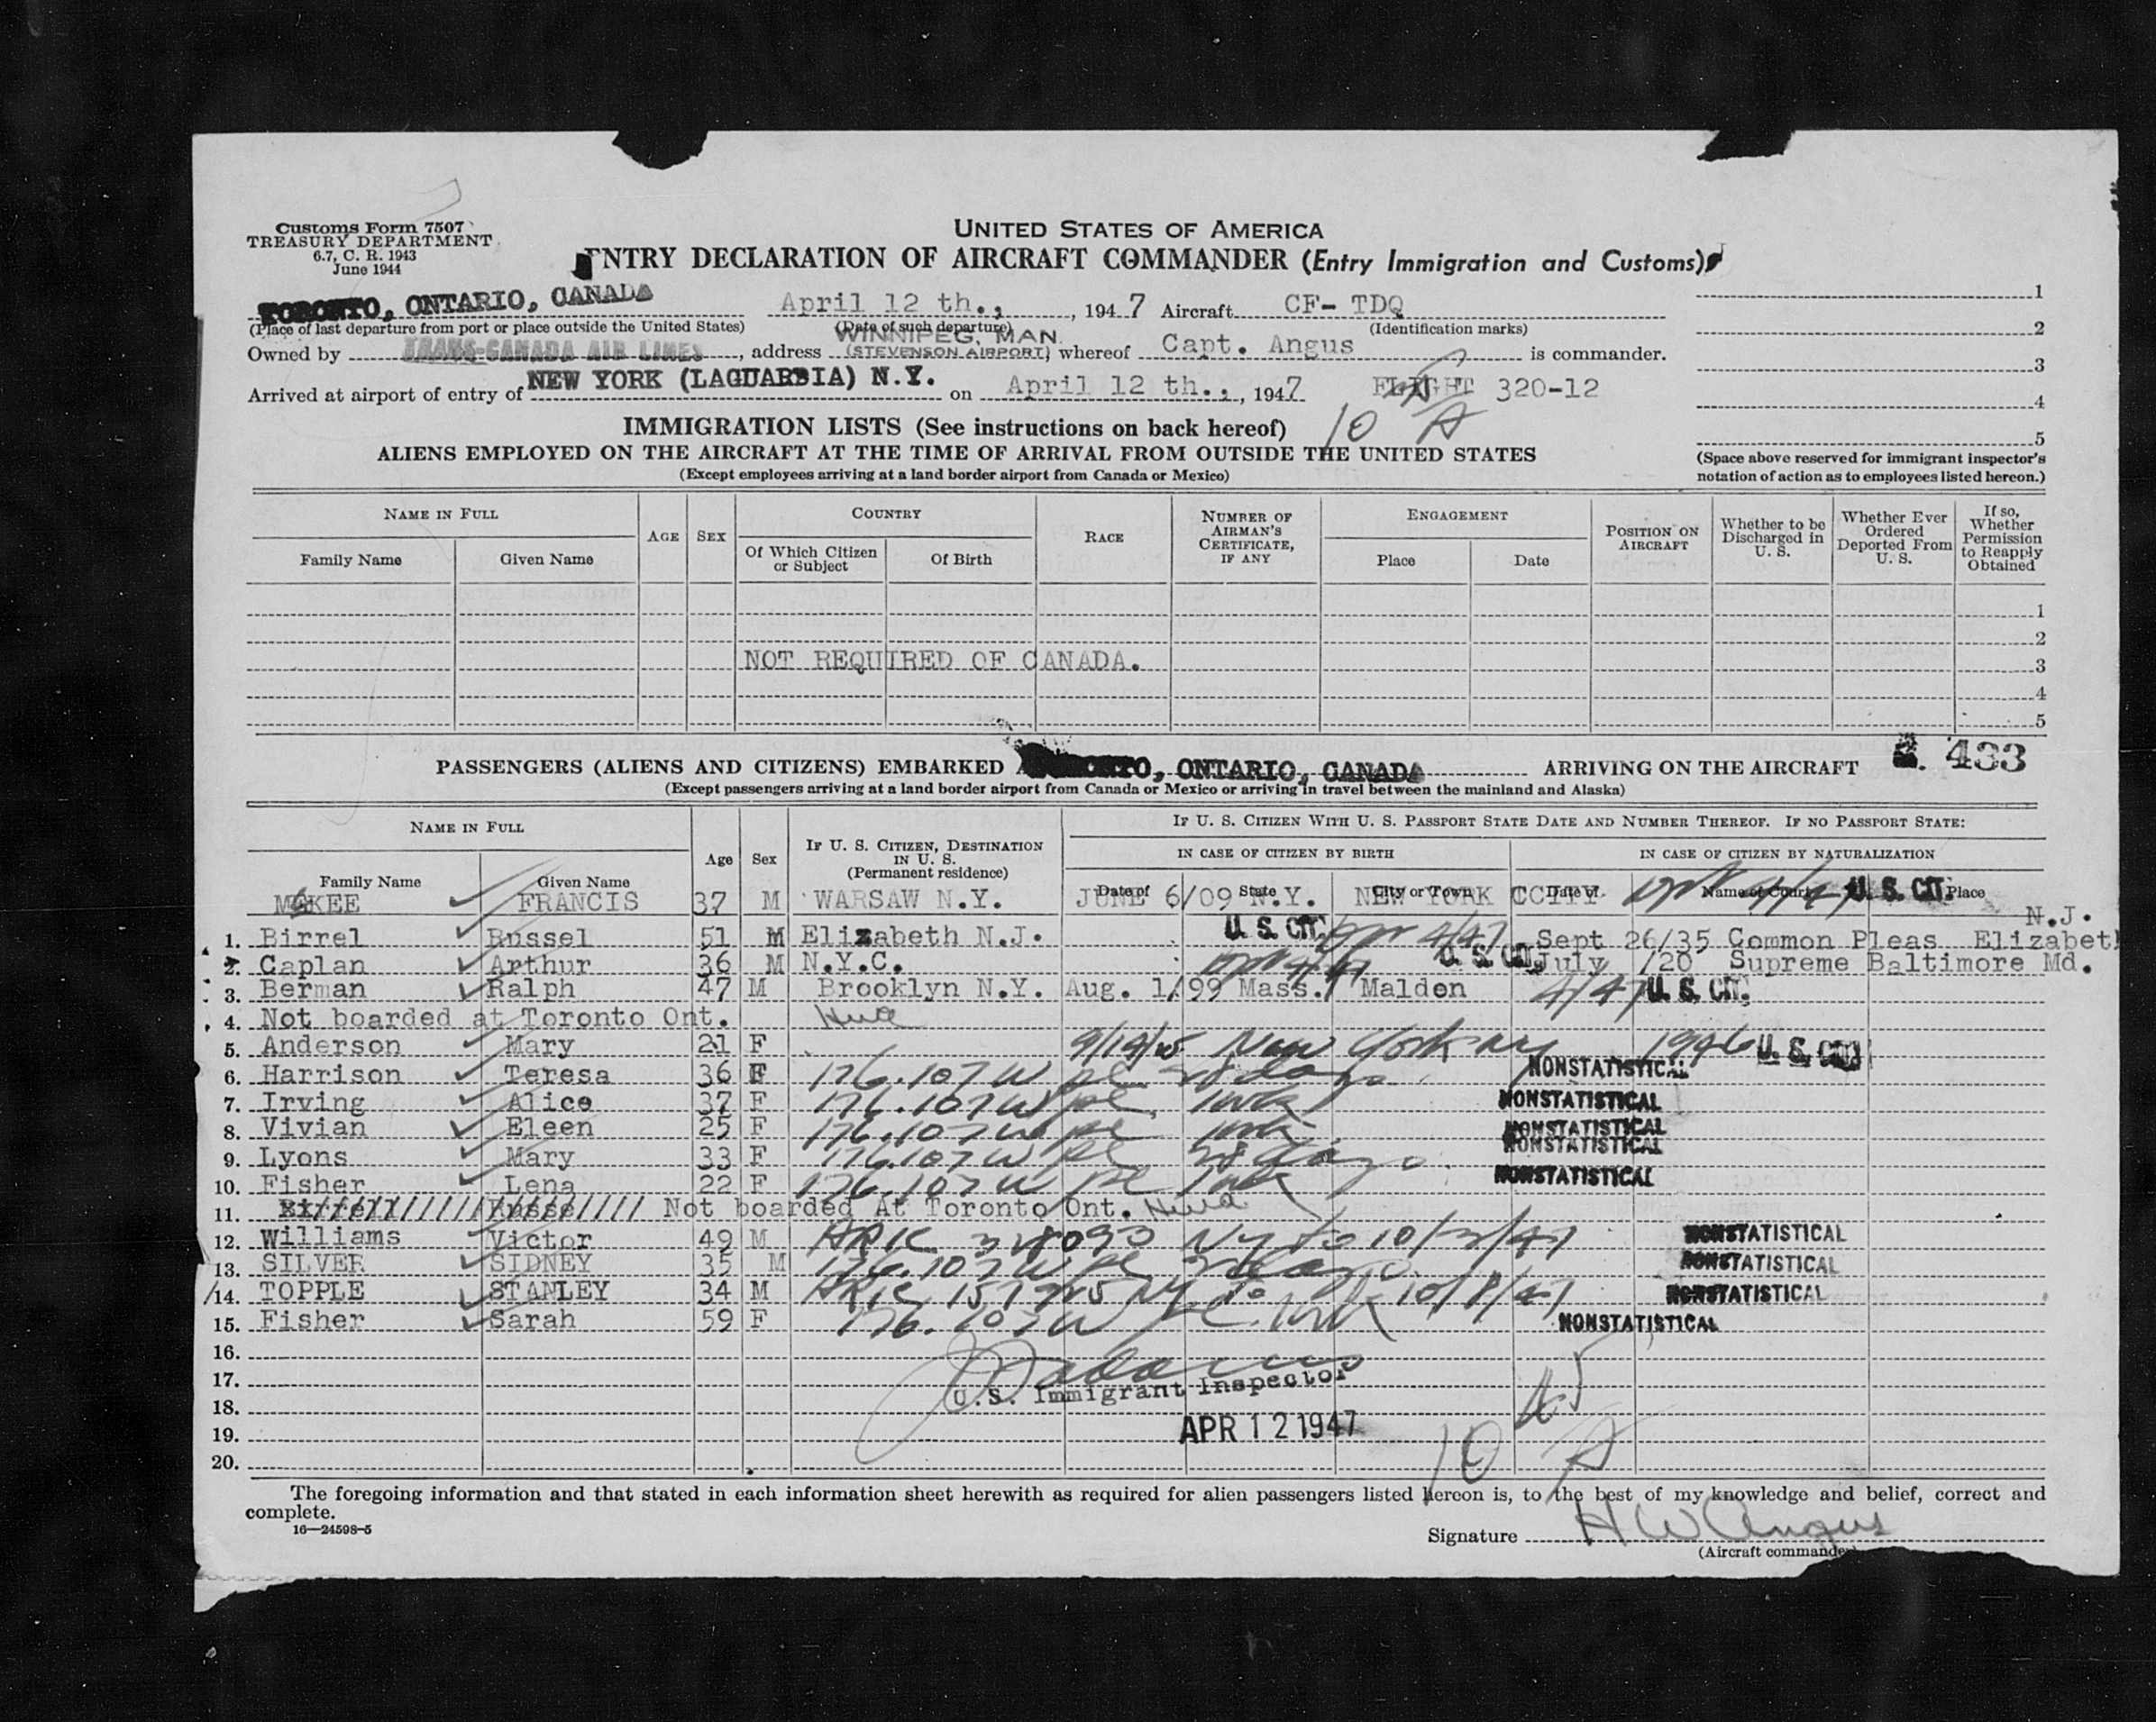 Customs Form 7507
TREASURY DEPARTMENT
6.7, C. R. 1943
June 1944
UNITED STATES OF AMERICA
ENTRY DECLARATION OF AIRCRAFT COMMANDER (Entry Immigration and Customs)
TORONTO, ONTARIO, CANADA April 12 th., , 1947 Aircraft CF- TDQ 1
(Place of last departure from port or place outside the United States) (Date of such departure) (Identification marks) 2
WINNIPEG, MAN.
Owned by TRANS-CANADA AIR LINES, address (STEVENSON AIRPORT) whereof Capt. Angus is commander. 3
Arrived at airport of entry of NEW YORK (LAGUARDIA) N.Y. on April 12 th., , 1947 FLIGHT 320-12 4
IMMIGRATION LISTS (See instructions on back hereof) 10 A 5
ALIENS EMPLOYED ON THE AIRCRAFT AT THE TIME OF ARRIVAL FROM OUTSIDE THE UNITED STATES
(Except employees arriving at a land border airport from Canada or Mexico)
(Space above reserved for immigrant inspector's notation of action as to employees listed hereon.)
NAME IN FULL
Family Name Given Name
AGE SEX
COUNTRY
Of Which Citizen or Subject Of Birth
RACE
NUMBER OF AIRMAN'S CERTIFICATE, IF ANY
ENGAGEMENT
Place Date
POSITION ON AIRCRAFT
Whether to be Discharged in U. S.
Whether Ever Ordered Deported From U. S.
If so, Whether Permission to Reapply Obtained
1
2
NOT REQUIRED OF CANADA. 3
4
5
PASSENGERS (ALIENS AND CITIZENS) EMBARKED TORONTO, ONTARIO, CANADA ARRIVING ON THE AIRCRAFT 433
(Except passengers arriving at a land border airport from Canada or Mexico or arriving in travel between the mainland and Alaska)
NAME IN FULL
Family Name Given Name
Age Sex
IF U. S. CITIZEN, DESTINATION IN U. S. (Permanent residence)
IF U. S. CITIZEN WITH U. S. PASSPORT STATE DATE AND NUMBER THEREOF. IF NO PASSPORT STATE:
IN CASE OF CITIZEN BY BIRTH IN CASE OF CITIZEN BY NATURALIZATION
Date of State City or Town Date of Name of Court Place
McKEE FRANCIS 37 M WARSAW N.Y. JUNE 6/09 N.Y. NEW YORK CCITY U. S. CIT.
N.J.
1. Birrel Russel 51 M Elizabeth N.J. U. S. CIT. 4/47 Sept 26/35 Common Pleas Elizabeth
2. Caplan Arthur 36 M N.Y.C. U. S. CIT. July /20 Supreme Baltimore Md.
3. Berman Ralph 47 M Brooklyn N.Y. Aug. 1/99 Mass. Malden 4/47 U. S. CIT.
4. Not boarded at Toronto Ont.
5. Anderson Mary 21 F New York 1946 U. S. CIT.
6. Harrison Teresa 36 F 176.107 W NONSTATISTICAL
7. Irving Alice 37 F 176.107 W NONSTATISTICAL
8. Vivian Eleen 25 F 176.107 W NONSTATISTICAL
9. Lyons Mary 33 F 176.107 W NONSTATISTICAL
10. Fisher Lena 22 F 176.107 W NONSTATISTICAL
11. Not boarded At Toronto Ont.
12. Williams Victor 49 M NONSTATISTICAL
13. SILVER SIDNEY 35 M 176.107 W NONSTATISTICAL
14. TOPPLE STANLEY 34 M 10/8/47 NONSTATISTICAL
15. Fisher Sarah 59 F 176.107 W NONSTATISTICAL
16.
17. U.S. Immigrant Inspector
18.
19. APR 12 1947
20. 10 A
The foregoing information and that stated in each information sheet herewith as required for alien passengers listed hereon is, to the best of my knowledge and belief, correct and
complete.
16—24598-5
Signature H W Angus
(Aircraft commander)